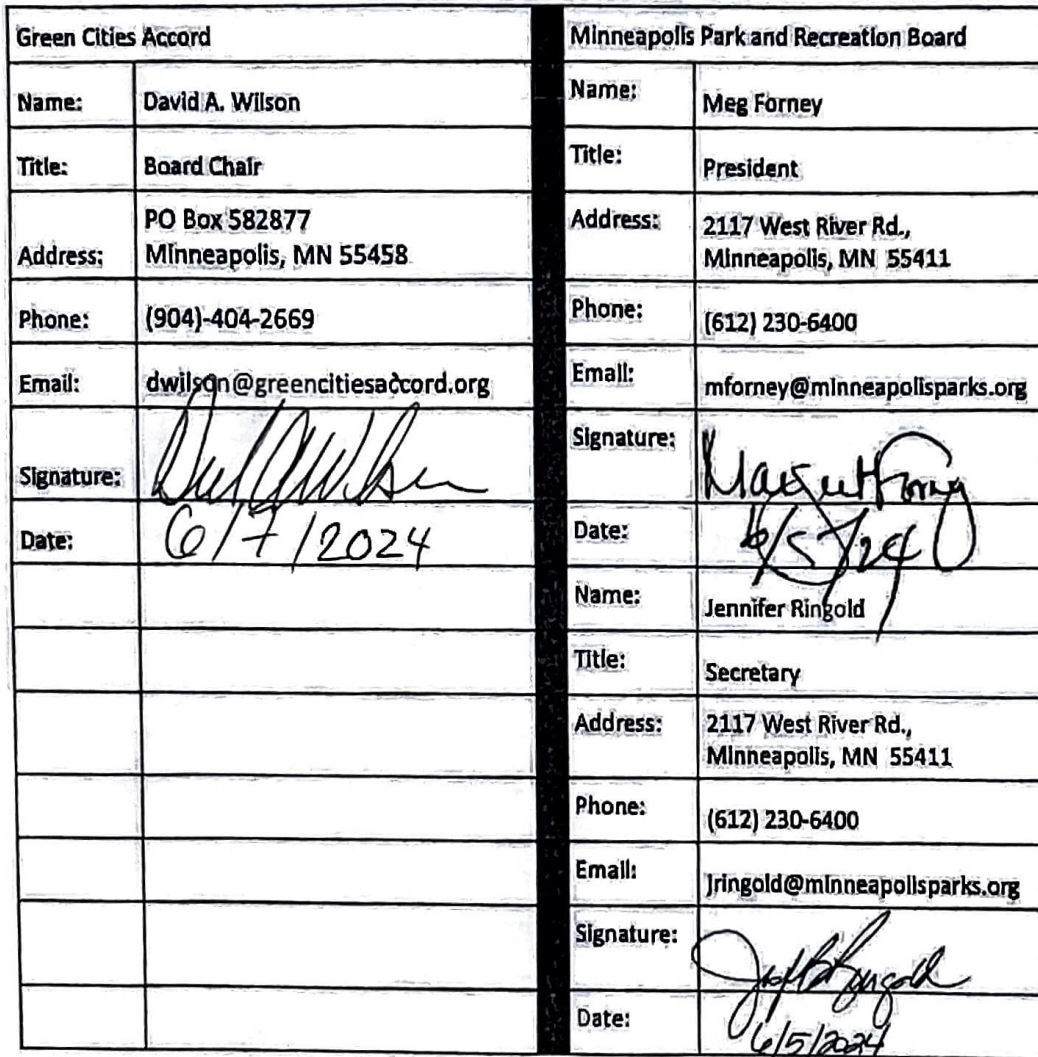 Green Cities Accord
Name: David A. Wilson
Title: Board Chair
Address: PO Box 582877
Minneapolis, MN 55458
Phone: (904)-404-2669
Email: dwilson@greencitiesaccord.org
Signature: David A Wilson
Date: 6/7/2024
Minneapolis Park and Recreation Board
Name: Meg Forney
Title: President
Address: 2117 West River Rd.,
Minneapolis, MN 55411
Phone: (612) 230-6400
Email: mforney@minneapolisparks.org
Signature: Margaret Forney
Date: 6/5/24
Name: Jennifer Ringold
Title: Secretary
Address: 2117 West River Rd.,
Minneapolis, MN 55411
Phone: (612) 230-6400
Email: jringold@minneapolisparks.org
Signature: Ringold
Date: 6/5/2024